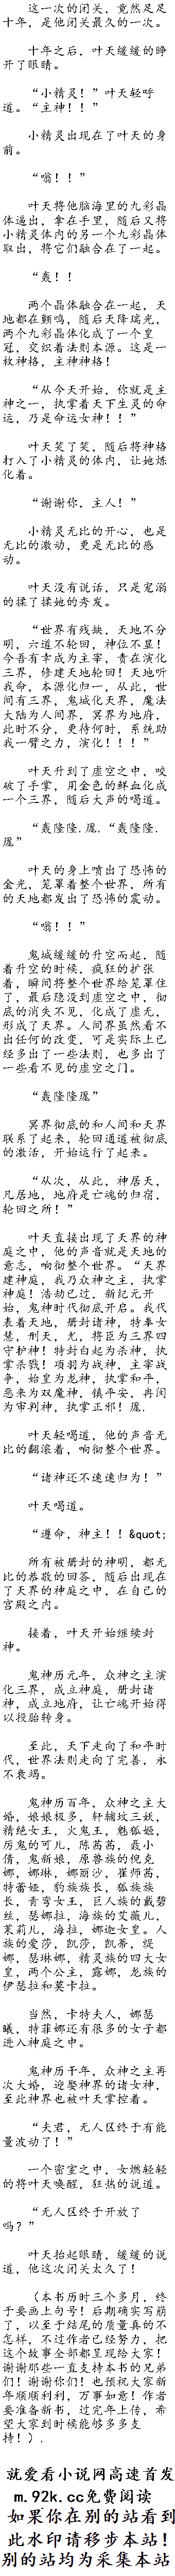 这一次的闭关，竟然足足
十年，是他闭关最久的一次。
十年之后，叶天缓缓的睁
开了眼睛。
“小精灵！”叶天轻呼
道。“主神！！”
小精灵出现在了叶天的身
前。
“嗡！！”
叶天将他脑海里的九彩晶
体逼出，拿在手里，随后又将
小精灵体内的另一个九彩晶体
取出，将它们融合在了一起。
“轰！！
两个晶体融合在一起，天
地都在颤鸣，随后天降瑞光，
两个九彩晶体化成了一个皇
冠，交织着法则本源。这是一
枚神格，主神神格！
“从今天开始，你就是主
神之一，执掌着天下生灵的命
运，乃是命运女神！！”
叶天笑了笑，随后将神格
打入了小精灵的体内，让她炼
化着。
“谢谢你，主人！”
小精灵无比的开心，也是
无比的激动，更是无比的感
动。
叶天没有说话，只是宠溺
的揉了揉她的秀发。
“世界有残缺，天地不分
明，六道不轮回，神位不显！
今吾有幸成为主宰，责在演化
三界，修建天地轮回！天地听
我命，本源化归一，从此，世
间有三界，鬼城化天界，魔法
大陆为人间界，冥界为地府，
此时不分，更待何时，系统助
我一臂之力，演化！！！”
叶天升到了虚空之中，咬
破了手掌，用金色的鲜血化成
一个三界，随后大声的喝道。
“轰隆隆.愿.“轰隆隆.
愿”
叶天的身上喷出了恐怖的
金光，笼罩着整个世界，所有
的天地都发出了恐怖的震动。
“嗡！！”
鬼城缓缓的升空而起，随
着升空的时候，疯狂的扩张
着，瞬间将整个世界给笼罩住
了，最后隐没到虚空之中，彻
底的消失不见，化成了虚无，
形成了天界。人间界虽然看不
出任何的改变，可是实际上已
经多出了一些法则，也多出了
一些看不见的虚空之门。
“轰隆隆愿”
冥界彻底的和人间和天界
联系了起来，轮回通道被彻底
的激活，开始运行了起来。
“从次，从此，神居天，
凡居地，地府是亡魂的归宿，
轮回之所！”
叶天直接出现了天界的神
庭之中，他的声音就是天地的
意志，响彻整个世界。“天界
建神庭，我乃众神之主，执掌
神庭！浩劫已过，新纪元开
始，鬼神时代彻底开启。我代
表着天地，册封诸神，特奉女
慧，刑天，尤，将臣为三界四
守护神！特封白起为杀神，执
掌杀戮！项羽为战神，主宰战
争，始皇为龙神，执掌和平，
恶来为双魔神，镇平安，冉闵
为审判神，执掌正邪！愿.
叶天轻喝道，他的声音无
比的翻滚着，响彻整个世界。
“诸神还不速速归为！”
叶天喝道。
“遵命，神主！！&quot;
所有被册封的神明，都无
比的恭敬的回答，随后出现在
了天界的神庭之中，在自己的
宫殿之内。
接着，叶天开始继续封
神。
鬼神历元年，众神之主演
化三界，成立神庭，册封诸
神，成立地府，让亡魂开始得
以投胎转身。
至此，天下走向了和平时
代，世界法则走向了完善，永
不衰竭。
鬼神历百年，众神之主大
婚，娘娘极多，轩辕坟三妖，
精绝女王，火鬼王，魅狐姬，
厉鬼的可儿，陈茜茜，聂小
倩，鬼新娘，原兽族的倪克
娜，娜琳，娜丽沙，崔师茜，
特蕾娅，豹族族长，狐族族
长，青鸾女王，巨人族的戴碧
丝，瑟娜拉，海族的艾薇儿，
茉莉儿，海拉，娜迦女皇。人
族的爱莎，凯莎，凯蒂，缇
娜，瑟琳娜，精灵族的四大女
皇，两个公主，露娜，龙族的
伊瑟拉和莫卡拉。
当然，卡特夫人，娜瑟
曦，特菲娜还有很多的女子都
进入神庭之中。
鬼神历千年，众神之主再
次大婚，迎娶神界的诸女神，
至此神界也被叶天掌控着。
“夫君，无人区终于有能
量波动了！”
一个密室之中，女燃轻轻
的将叶天唤醒，狂热的说道。
“无人区终于开放了
吗？”
叶天抬起眼睛，缓缓的说
道，他这次闭关太久了！
（本书历时三个多月，终
于要画上句号！后期确实写崩
了，以至于结尾的质量真的不
怎样，不过作者已经努力，把
这个故事全部都呈现给大家！
谢谢那些一直支持本书的兄弟
们！谢谢你们！也预祝大家新
年顺顺利利，万事如意！作者
要准备新书，过完年上传，希
望大家到时候能够多多支
持！）.
就爱看小说网高速首发
m.92k.cc免费阅读
如果你在别的站看到
此水印请移步本站！
别的站均为采集本站